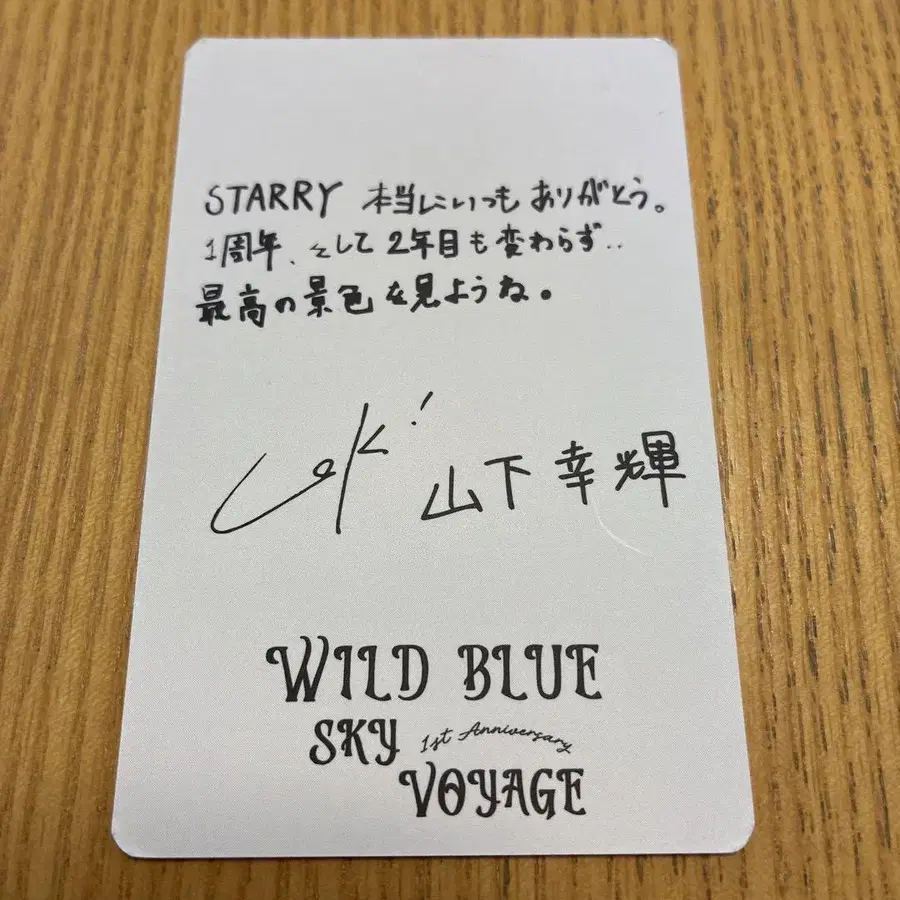 STARRY 本当にいつもありがとう。
1周年、そして2年目も変わらず..
最高の景色を見ようね。
山下幸輝
WILD BLUE
SKY 1st Anniversary
VOYAGE